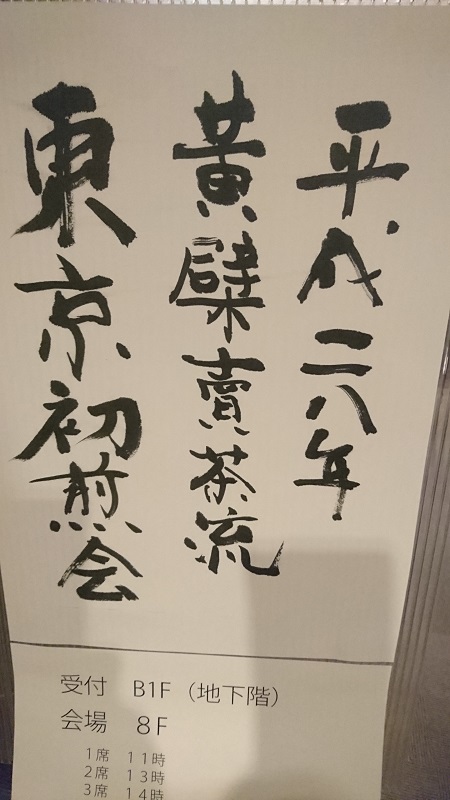 平成二八年
黄檗賣茶流
東京初煎会
受付 B1F（地下階）
会場 8F
1席 11時
2席 13時
3席 14時